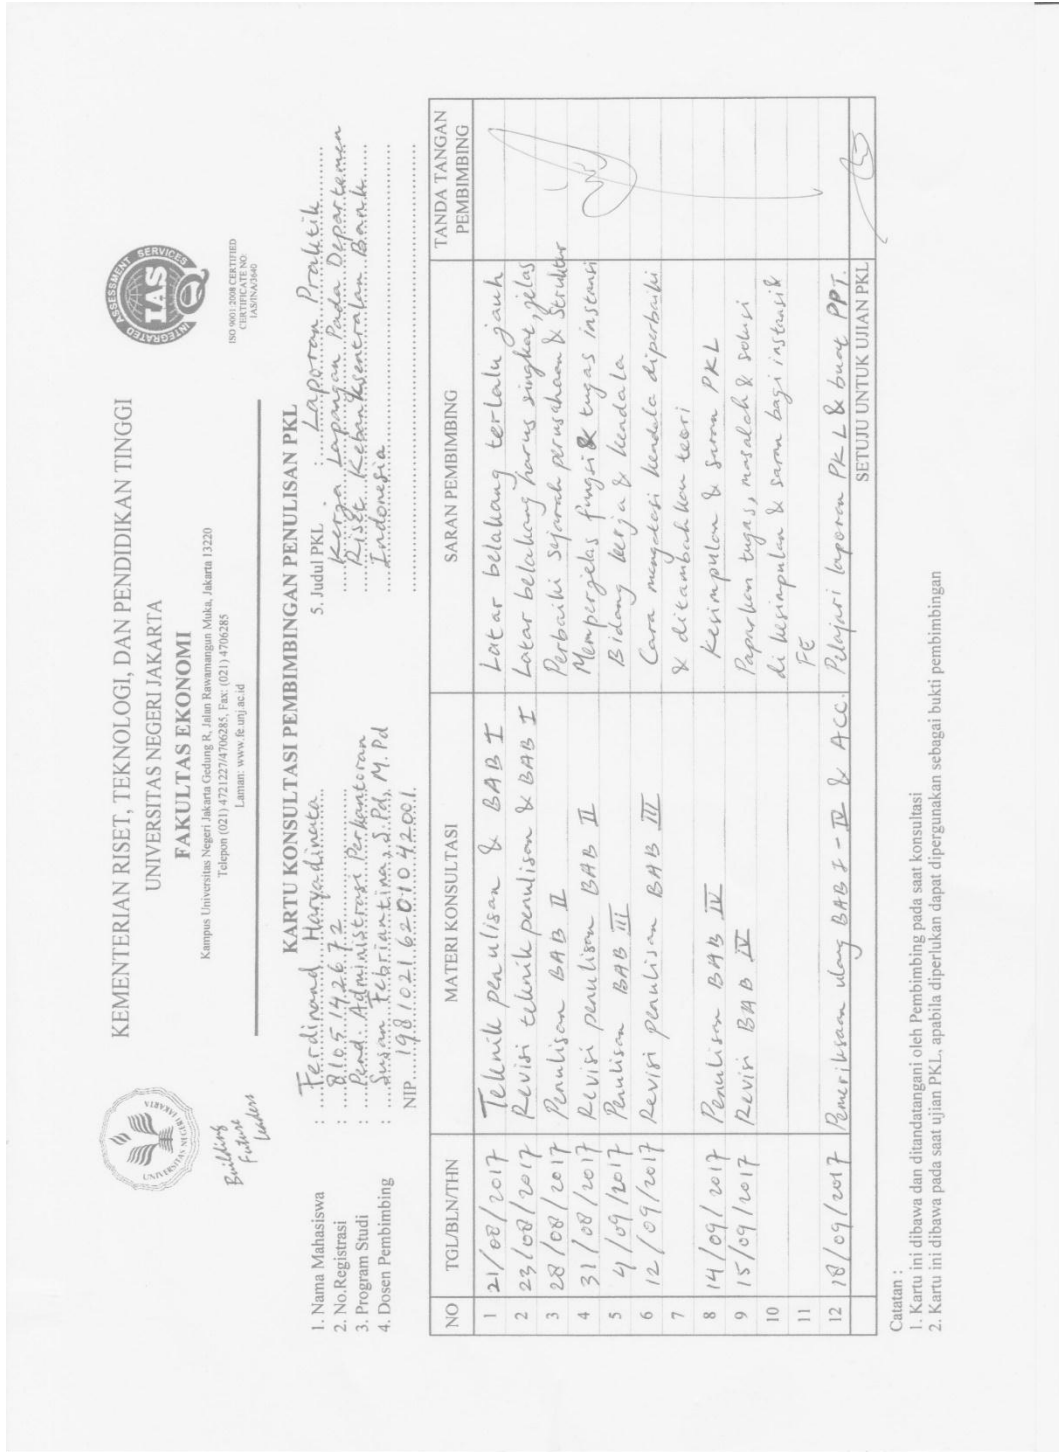 KEMENTERIAN RISET, TEKNOLOGI, DAN PENDIDIKAN TINGGI
UNIVERSITAS NEGERI JAKARTA
FAKULTAS EKONOMI
Kampus Universitas Negeri Jakarta Gedung R, Jalan Rawamangun Muka, Jakarta 13220
Telepon (021) 4721227/4706285, Fax: (021) 4706285
Laman: www.fe.unj.ac.id
UNIVERSITAS NEGERI JAKARTA
Building
Future
Leaders
INTEGRATED ASSESSMENT SERVICES
IAS
ISO 9001:2008 CERTIFIED
CERTIFICATE NO:
IAS/INA/3640
KARTU KONSULTASI PEMBIMBINGAN PENULISAN PKL
1. Nama Mahasiswa : Ferdinand Haryadinata
2. No.Registrasi : 8105142672
3. Program Studi : Pend. Administrasi Perkantoran
4. Dosen Pembimbing : Susan Febriantina, S.Pd, M.Pd
NIP. 198102162010104 2001
5. Judul PKL : Laporan Praktik
Kerja Lapangan Pada Departemen
Riset Kebanksentralan Bank
Indonesia
NO TGL/BLN/THN MATERI KONSULTASI SARAN PEMBIMBING TANDA TANGAN PEMBIMBING
1 21/08/2017 Teknik penulisan & BAB I Latar belakang terlalu jauh
2 23/08/2017 Revisi teknik penulisan & BAB I Latar belakang harus singkat, jelas
3 28/08/2017 Penulisan BAB II Perbaiki sejarah perusahaan & Struktur
4 31/08/2017 Revisi penulisan BAB II Memperjelas fungsi & tugas instansi
5 4/09/2017 Penulisan BAB III Bidang kerja & kendala
6 12/09/2017 Revisi penulisan BAB III Cara mengatasi kendala diperbaiki
7 & ditambahkan teori
8 14/09/2017 Penulisan BAB IV Kesimpulan & saran PKL
9 15/09/2017 Revisi BAB IV Paparkan tugas, masalah & solusi
10 di kesimpulan & saran bagi instansi &
11 FE
12 18/09/2017 Pemeriksaan ulang BAB I - IV & ACC. Pelajari laporan PKL & buat PPT.
SETUJU UNTUK UJIAN PKL
Catatan :
1. Kartu ini dibawa dan ditandatangani oleh Pembimbing pada saat konsultasi
2. Kartu ini dibawa pada saat ujian PKL, apabila diperlukan dapat dipergunakan sebagai bukti pembimbingan